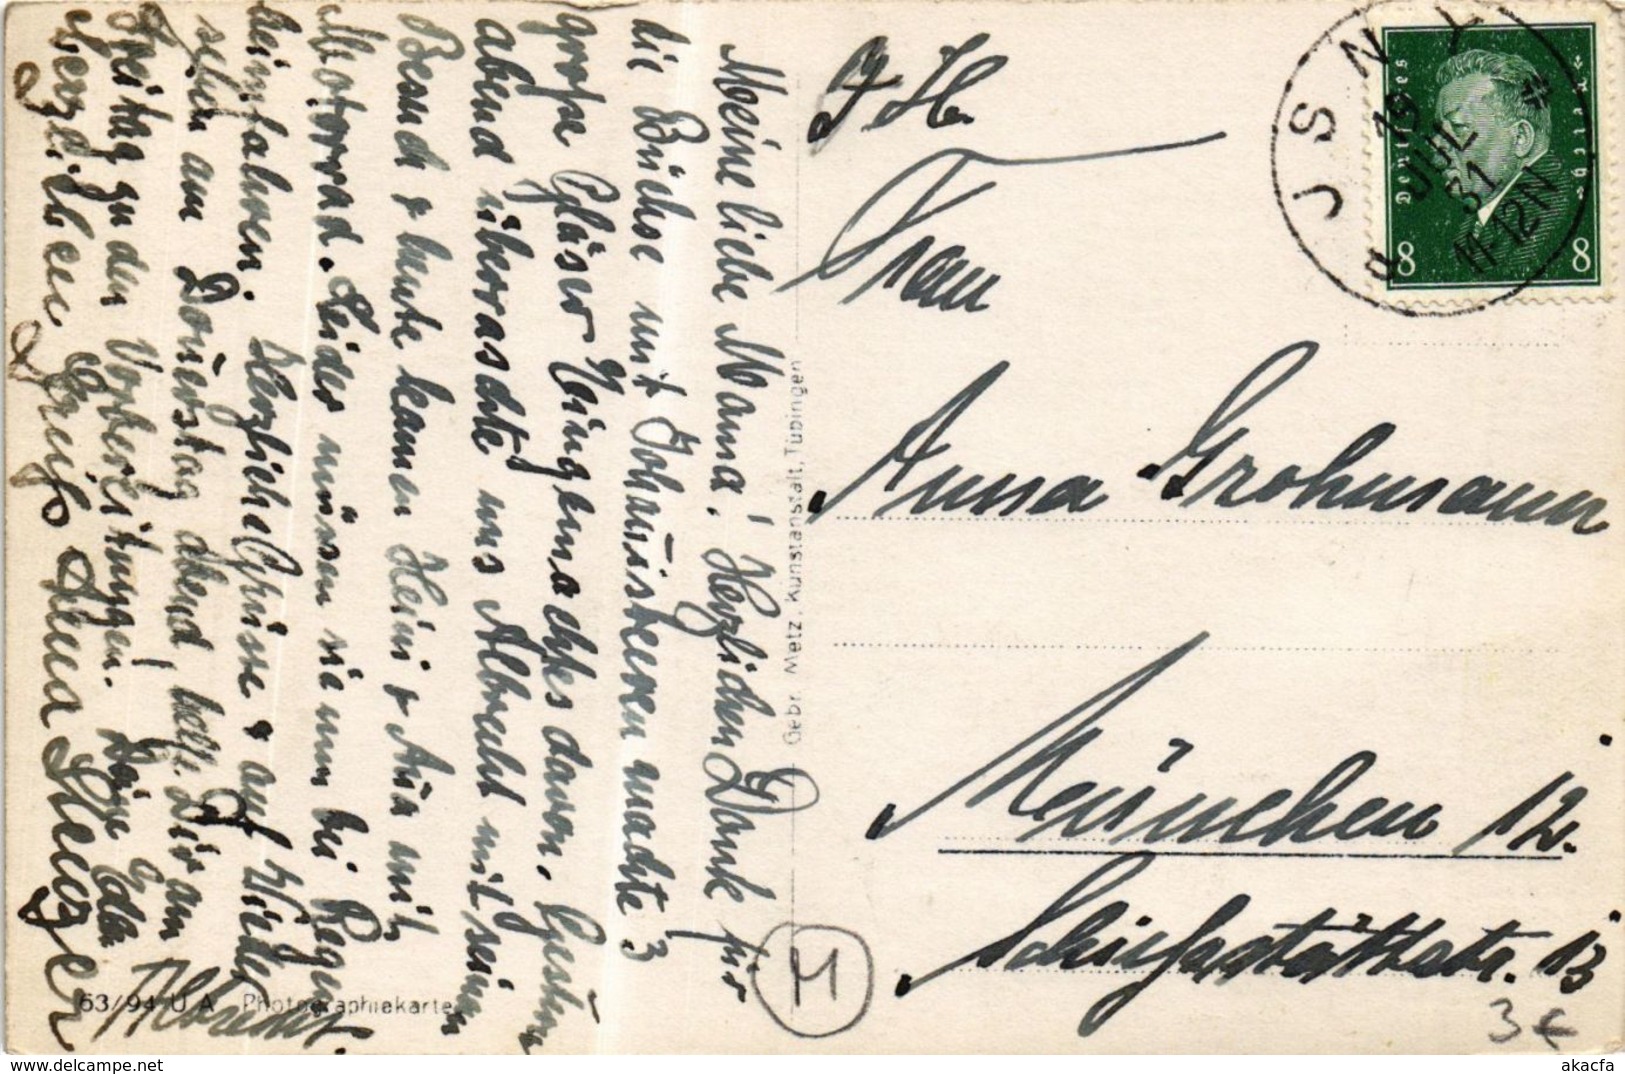 Meine liebe Mama! Herzlichen Dank für
die Büchse mit Johannisbeeren machte 3
große Gläser Eingemachtes davon. Gestern
abend überraschte uns Albrecht mit seinem
Besuch & heute kamen Heini & Aña mit
Motorrad. Leider müssen sie nun bei Regen
heimfahren. Herzliche Grüsse & auf Wieder
sehen am Donnerstag abend, helfe Dir am
Freitag zu den Vorbereitungen!
Herzlichen Gruß
Albrecht.
J. H.
Frau
Anna Grohmann
München 12.
13
Gebr. Metz, Kunstanstalt, Tübingen
63/94 U A Photographiekarte
M
3 €
Deutsches Reich
8 8
ISNY
19 JUL 31
11-12 N
akacfa